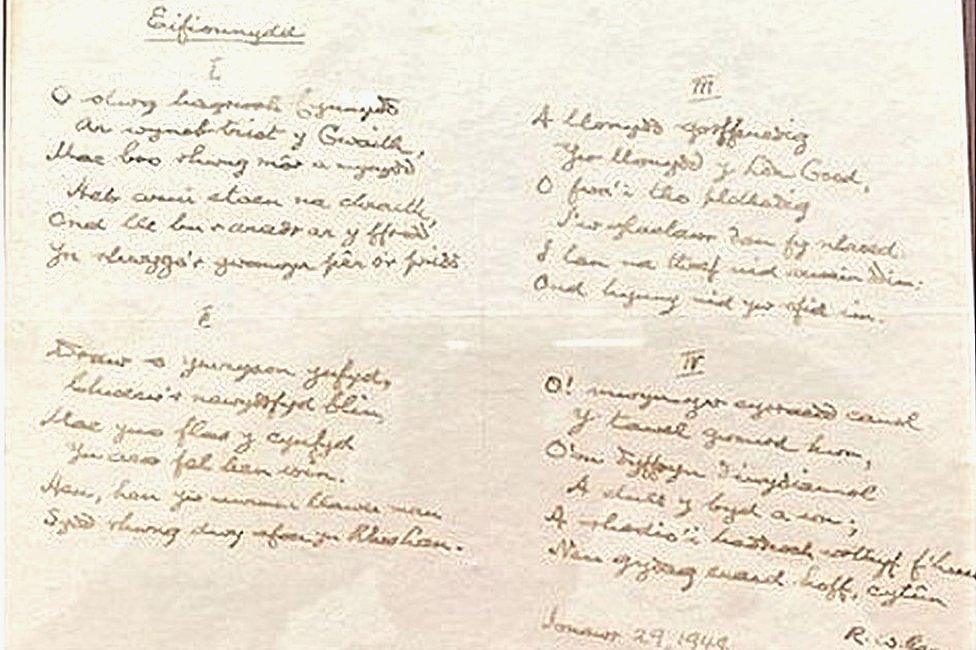 Eifionnydd
I
O olwg hagrwch Cynnydd
Ar wyneb trist y Gwaith,
Mae bro rhwng môr a mynydd
Heb arni staen na chraith,
Ond lle bu'r aradr ar y ffridd
Yn rhwygo'r gwanwyn pêr o'r pridd.
Draw o ymryson ynfyd,
Chwerw'r newyddfyd blin,
Mae yno flas y cynfyd
Yn aros fel hen win.
Hen, hen yw murmur llawer man
Sydd rhwng dwy afon yn Rhoslan.
III
A llonydd gorffenedig
Yw llonydd y Lôn Goed,
O fwa'i tho plethedig
I'w glaslawr dan fy nhroed.
I lan na thref nid arwain ddim.
Ond hynny nid yw ofid im.
IV
O! mwyn yw cyrraedd canol
Y tawel gwmwd hwn,
O'm dyffryn diwydiannol
A dull y byd a wn;
A rhodio'i heddwch wrthyf f'hun
Neu gydag enaid hoff, cytûn
Ionawr 29, 1949
R. W.